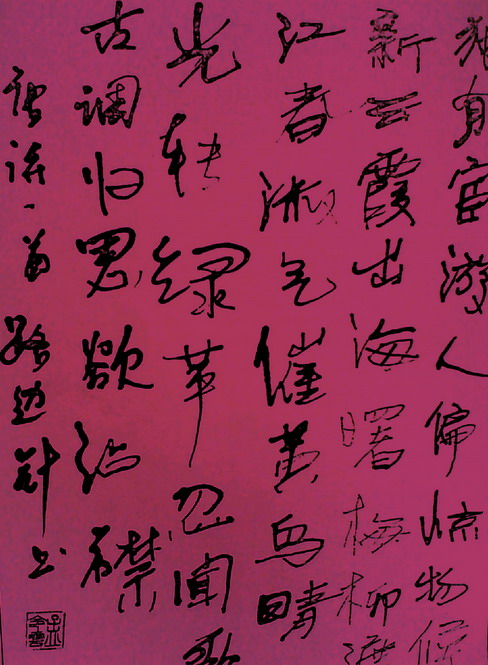 独有宦游人偏惊物候
新云霞出海曙梅柳渡
江春淑气催黄鸟晴
光转绿苹忽闻歌
古调归思欲沾襟
唐诗一首路边针书